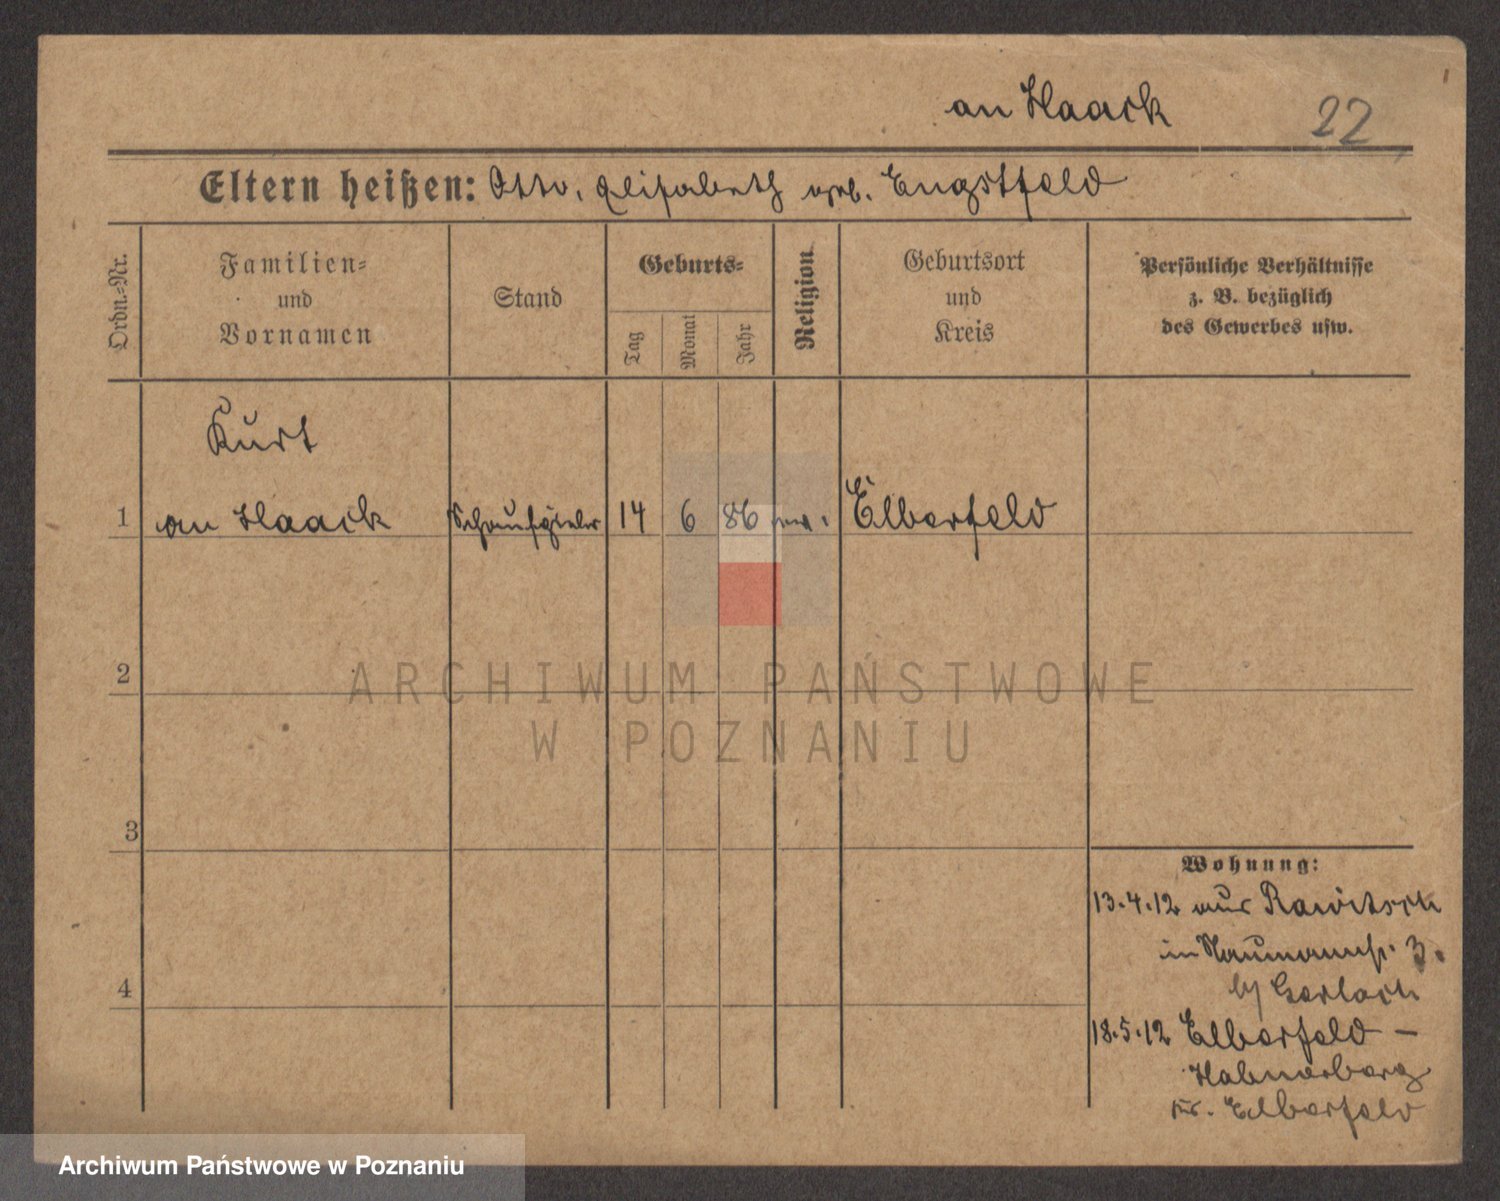 an Haack 22
Eltern heißen: Otto, Elisabeth geb. Engstfeld
Ordn.-Nr.
Familien-
und
Vornamen
Stand
Geburts-
Tag
Monat
Jahr
Religion
Geburtsort
und
Kreis
Persönliche Verhältnisse
z. B. bezüglich
des Gewerbes usw.
Kurt
1 an Haack Schauspieler 14 6 86 ev. Elberfeld
2
3
4
Wohnung:
13.4.12 aus Rawitsch
in Naumannstr. 3.
b/ Gerlach
18.5.12 Elberfeld –
Kr. Elberfeld
ARCHIWUM PAŃSTWOWE
W POZNANIU
Archiwum Państwowe w Poznaniu